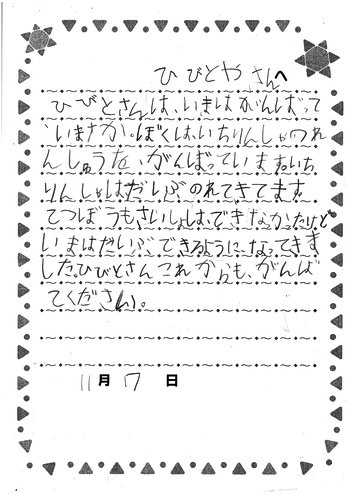 ひびとやさんへ
ひびとさんは、いまはがんばって
いますか。ぼくは、いちりんしゃのれ
んしゅうを、がんばっています。いち
りんしゃはだいぶのれてきてます。
てつぼうもさいしょは、できなかったけど
いまはだいぶ、できるように、なってきま
した。ひびとさんこれからも、がんば
てください。
11月17日